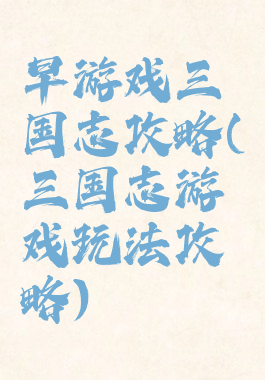 早游戏三
国志攻略(
三国志游
戏玩法攻
略)